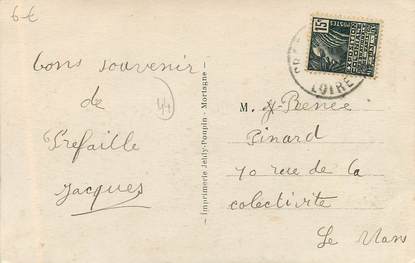 6€
Bons souvenir
de
Prefaille
Jacques
44
Imprimerie Jehly-Poupin - Mortagne
15c
POSTES
LOIRE
M. Renée
Pinard
70 rue de la
colectivite
Le Mans